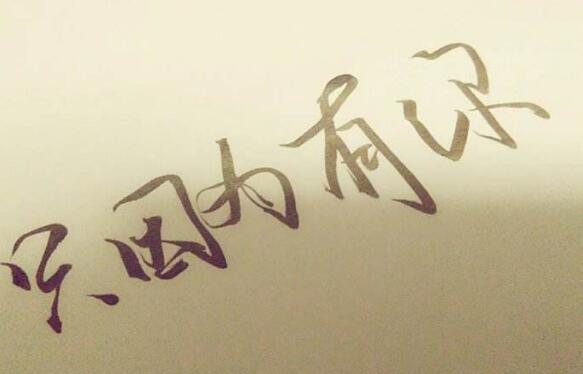 只因为有你